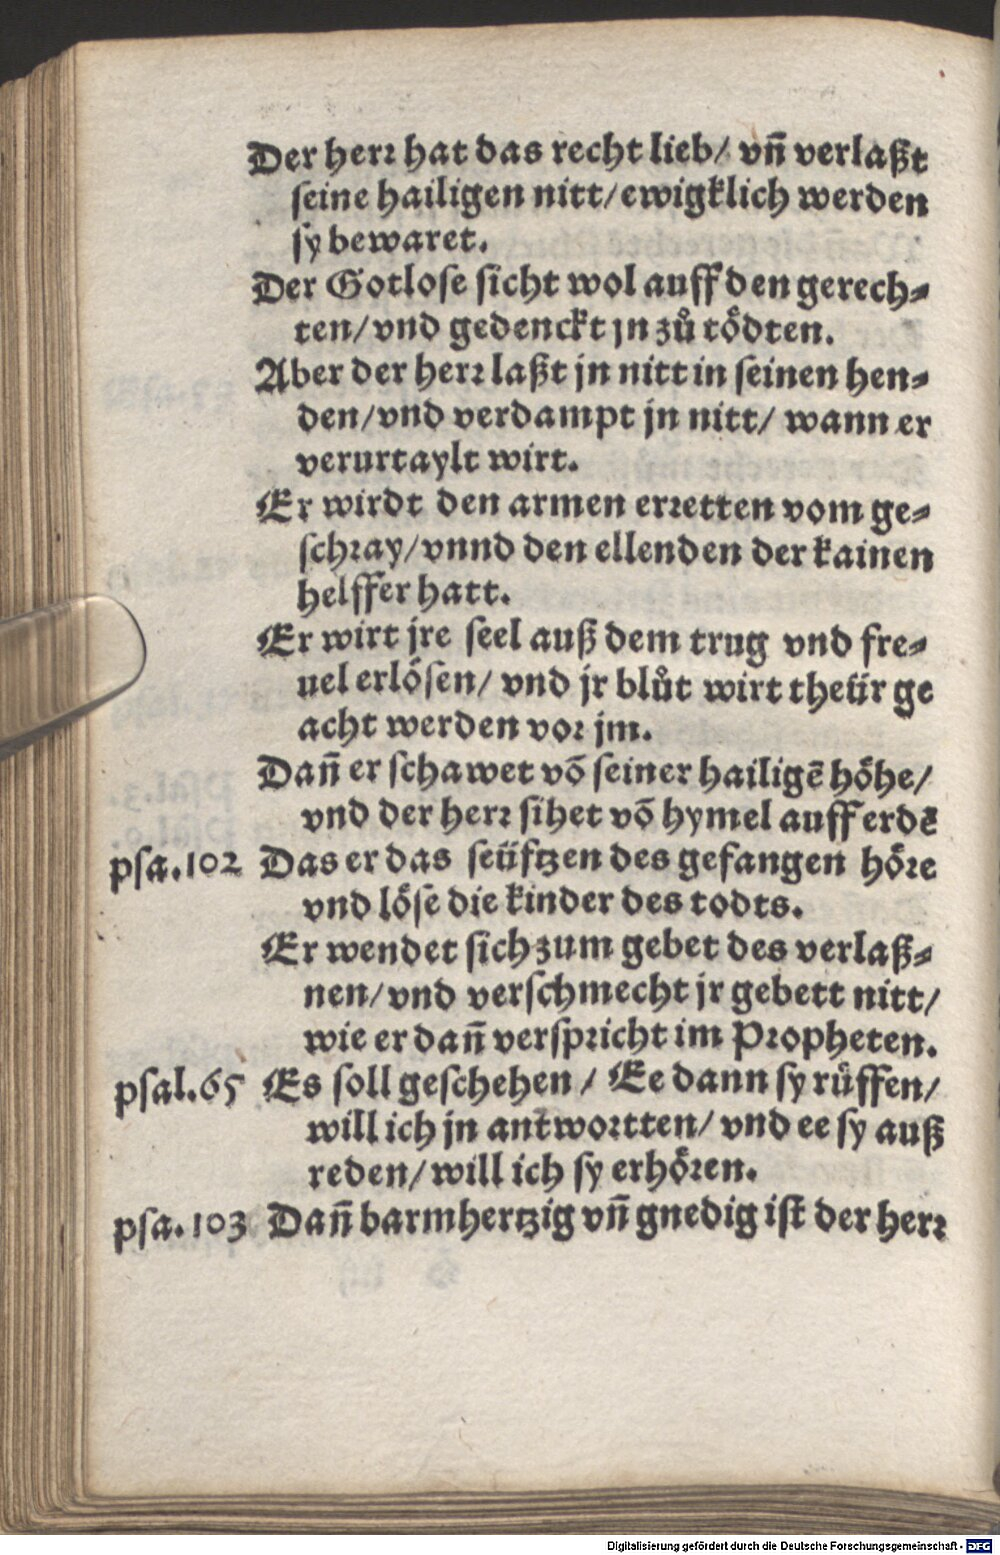 Der herr hat das recht lieb/ vn̄ verlaßt
seine hailigen nitt/ewigklich werden
sy bewaret.
Der Gotlose sicht wol auff den gerech⸗
ten/vnd gedenckt jn zů tödten.
Aber der herr laßt jn nitt in seinen hen⸗
den/vnd verdampt jn nitt/ wann er
verurtaylt wirt.
Er wirdt den armen erretten vom ge⸗
schray/vnnd den ellenden der kainen
helffer hatt.
Er wirt jre seel auß dem trug vnd fre⸗
uel erlösen/ vnd jr blůt wirt theür ge
acht werden vor jm.
Dan̄ er schawet võ seiner hailigẽ höhe/
vnd der herr sihet võ hymel auff erdẽ
psa.102 Das er das seüfftzen des gefangen höre
vnd löse die kinder des todts.
Er wendet sich zum gebet des verlaß⸗
nen/vnd verschmecht jr gebett nitt/
wie er dan̄ verspricht im Propheten.
psal.65 Es soll geschehen / Ee dann sy rüffen/
will ich jn antwortten/ vnd ee sy auß
reden/will ich sy erhören.
psa.103 Dan̄ barmhertzig vn̄ gnedig ist der herr
Digitalisierung gefördert durch die Deutsche Forschungsgemeinschaft - DFG